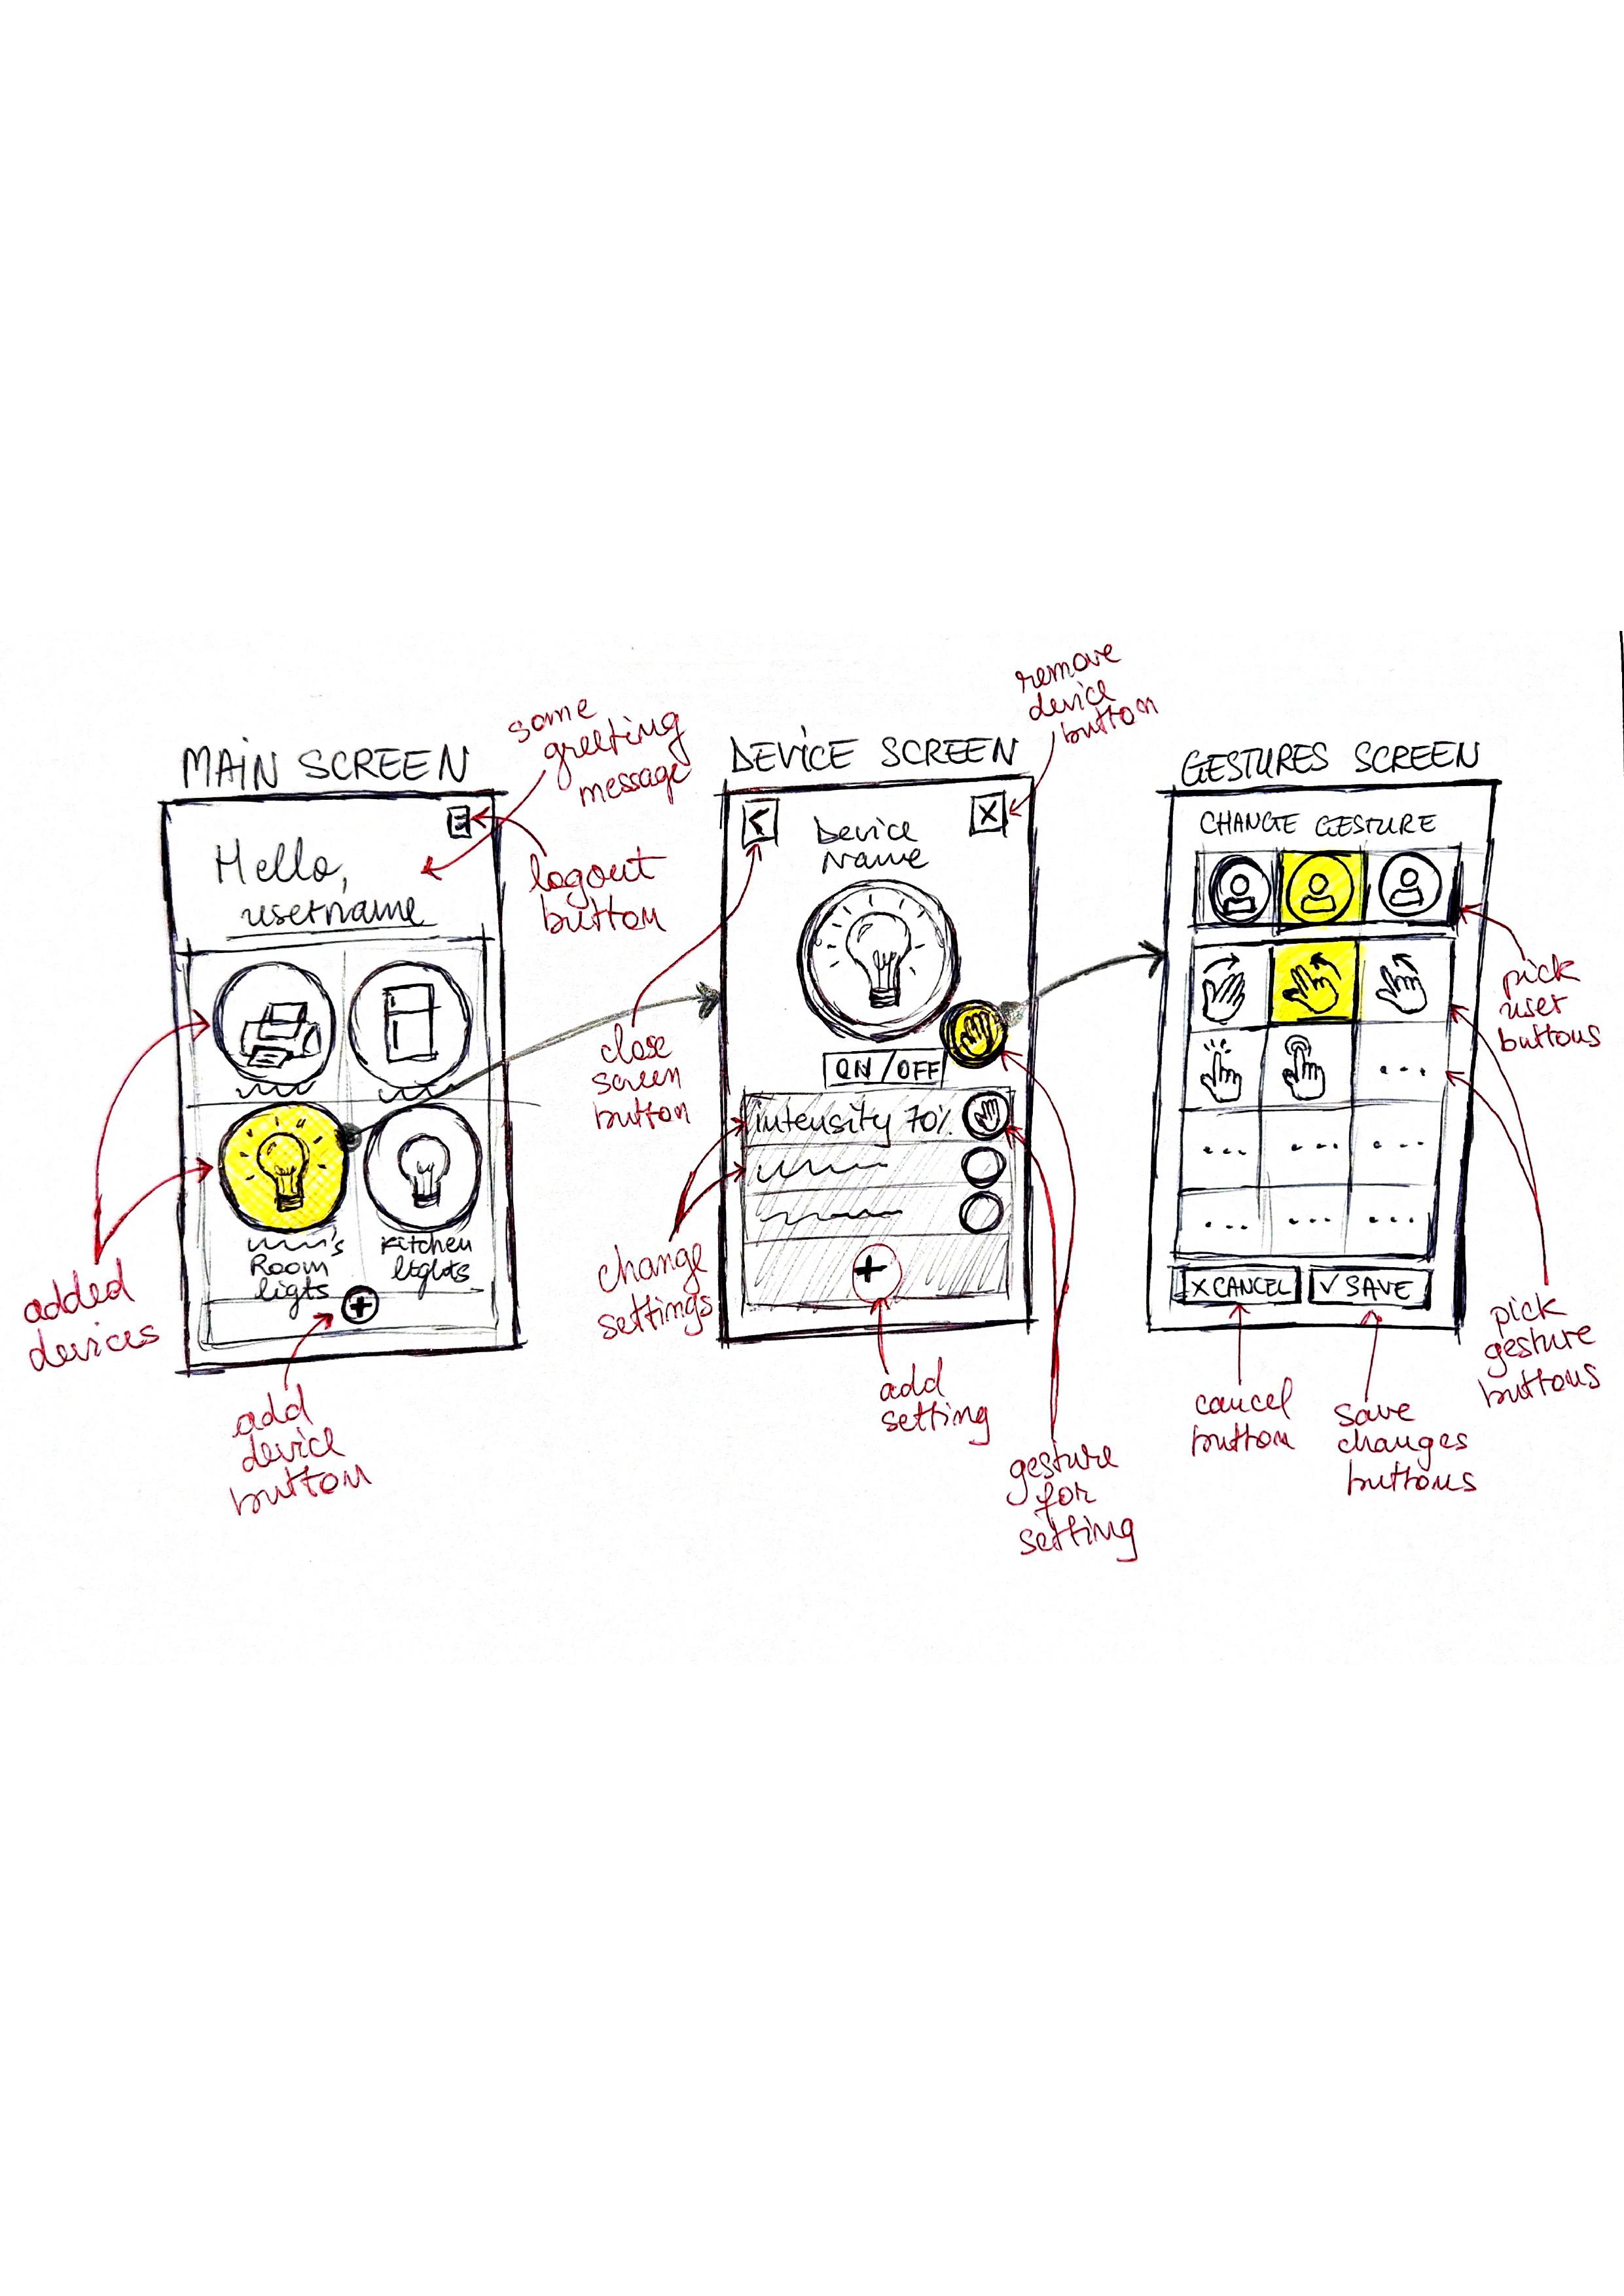 MAIN SCREEN
some
greeting
message
Hello,
username
logout
button
's
Room
ligts
Kitchen
lights
added
devices
add
device
button
DEVICE SCREEN
remove
device
button
<
X
Device
Name
close
screen
button
ON/OFF
intensity 70%
change
settings
+
add
setting
gesture
for
setting
GESTURES SCREEN
CHANGE GESTURE
pick
user
buttons
...
... ... ...
... ... ...
X CANCEL
✓ SAVE
pick
gesture
buttons
cancel
button
save
changes
buttons